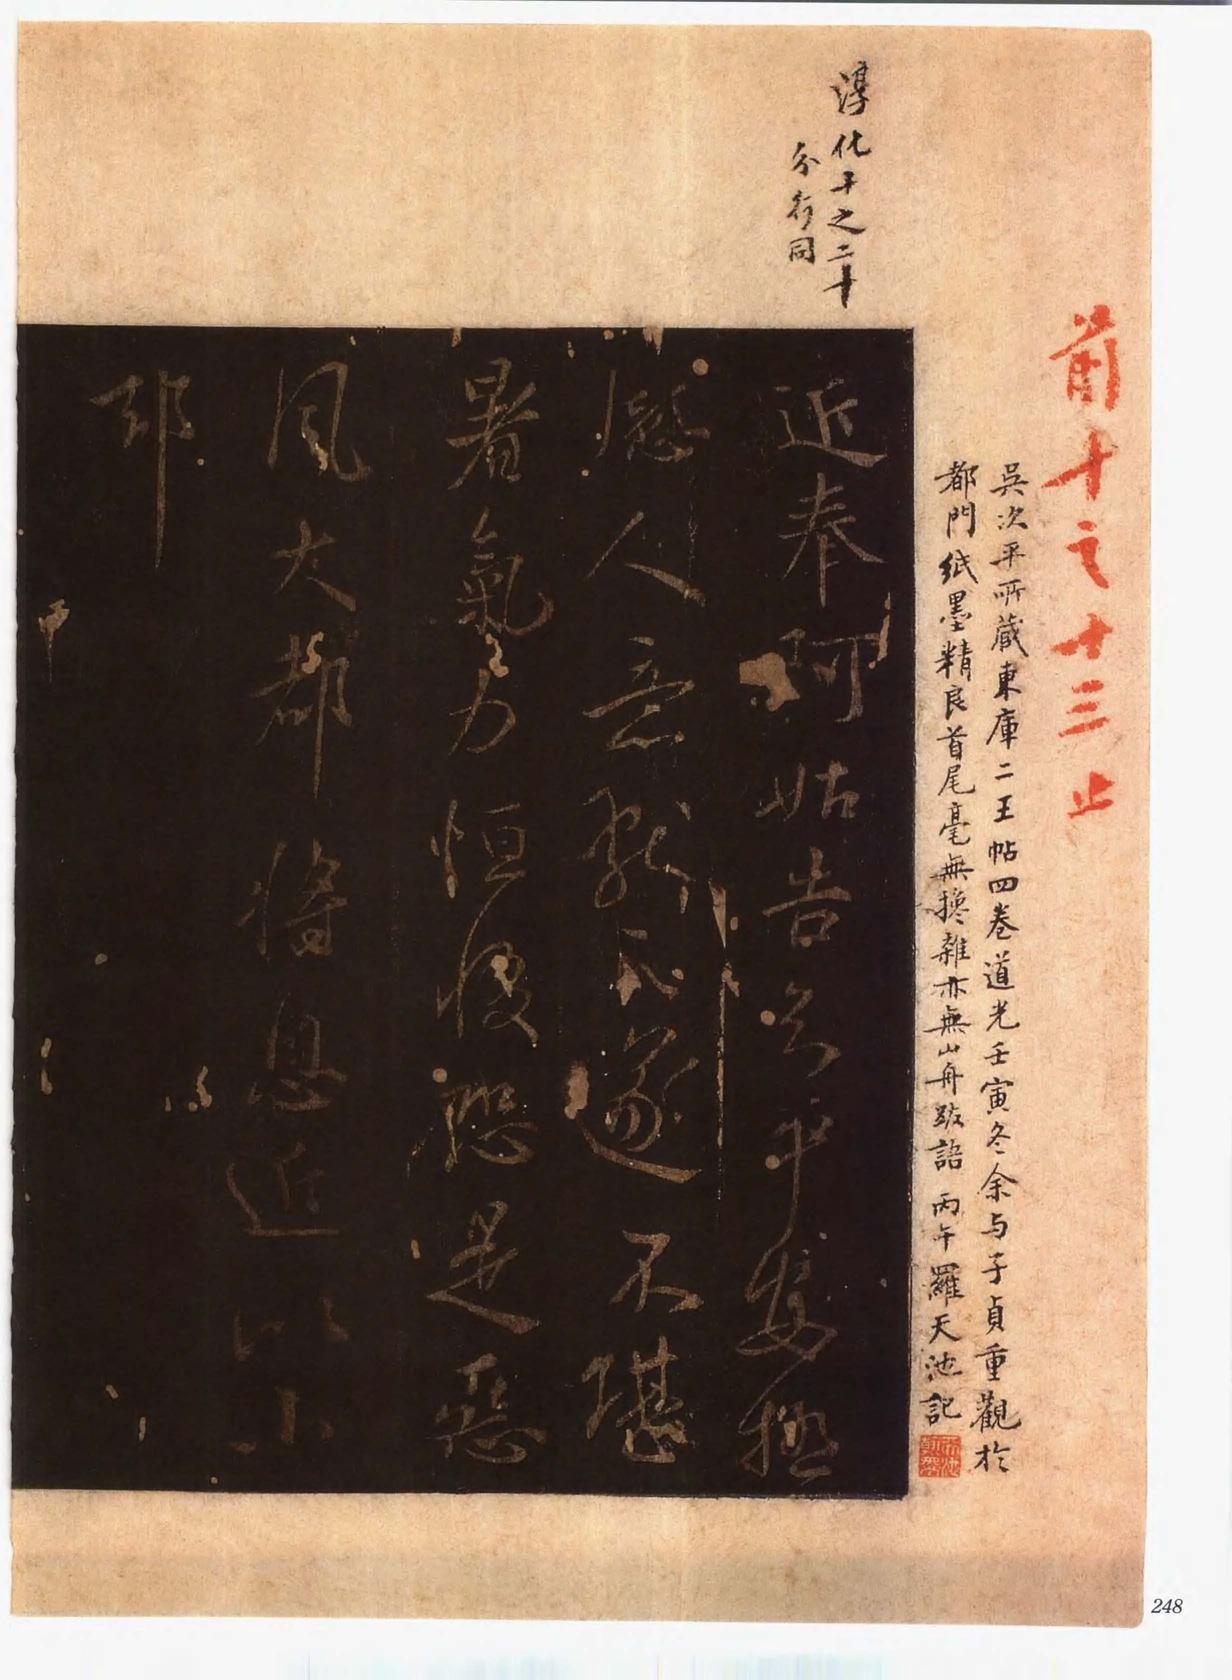 前十之十三止
吳次平所藏東庫二王帖四卷道光壬寅冬余与子貞重觀於
都門紙墨精良首尾毫無攙雜亦無山舟跋語 丙午羅天池記
淳化十之二十
分行同
近奉阿姑告云平安極
慰人意遂不堪
暑氣力恒惙恐是惡
風大都將息近似小
却
248